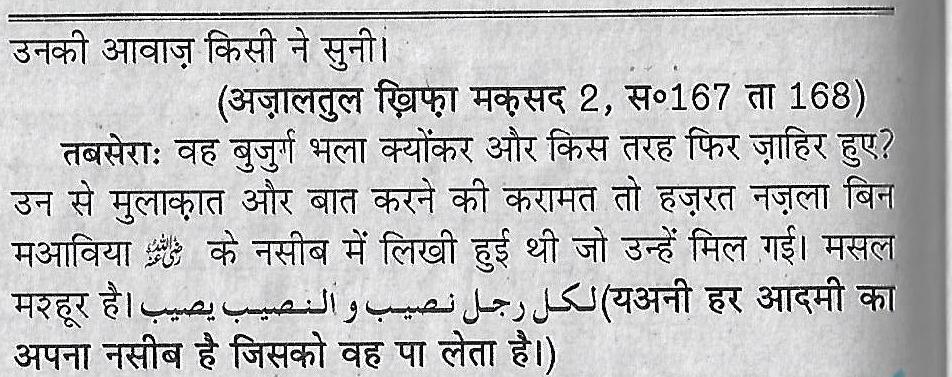 उनकी आवाज़ किसी ने सुनी।
(अज़ालतुल ख़िफ़ा मक़सद 2, स०167 ता 168)
तबसेराः वह बुज़ुर्ग भला क्योंकर और किस तरह फिर ज़ाहिर हुए?
उन से मुलाक़ात और बात करने की करामत तो हज़रत नज़ला बिन
मआविया ؓ के नसीब में लिखी हुई थी जो उन्हें मिल गई। मसल
मश्हूर है। لكل رجل نصيب و النصيب يصيب (यअनी हर आदमी का
अपना नसीब है जिसको वह पा लेता है।)